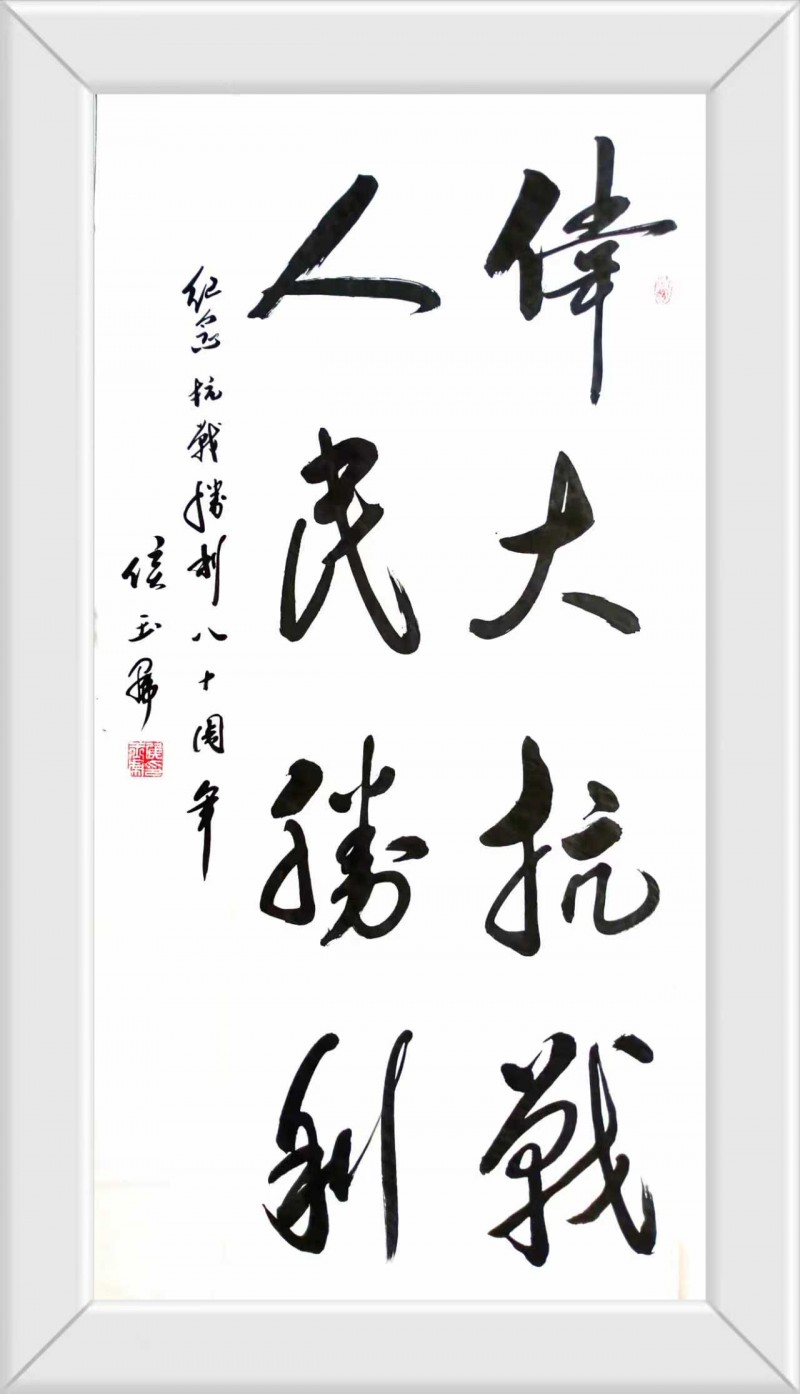 偉大抗戰
人民勝利
紀念抗戰勝利八十周年